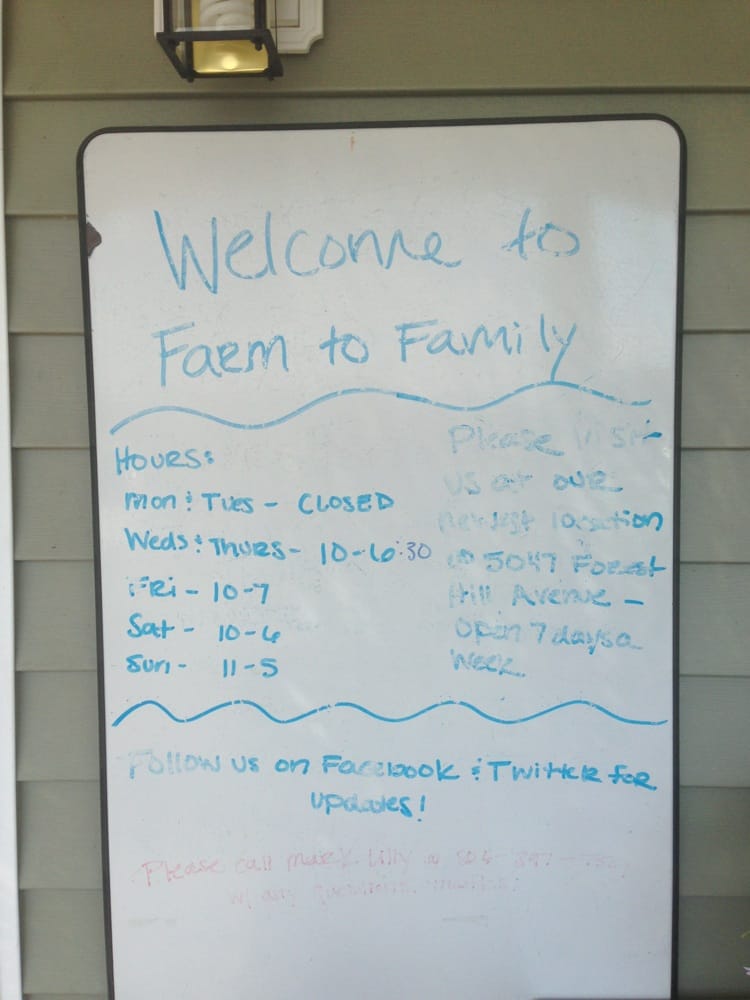 Welcome to
Farm to Family
HOURS:
Mon & Tues - CLOSED
Weds & Thurs - 10-6:30
Fri - 10-7
Sat - 10-6
Sun - 11-5
Please visit
us at our
newest location
@ 5047 Forest
Hill Avenue -
open 7 days a
week.
Follow us on Facebook & Twitter for
updates!
Please call Mark Lilly @ 804-
w/ any